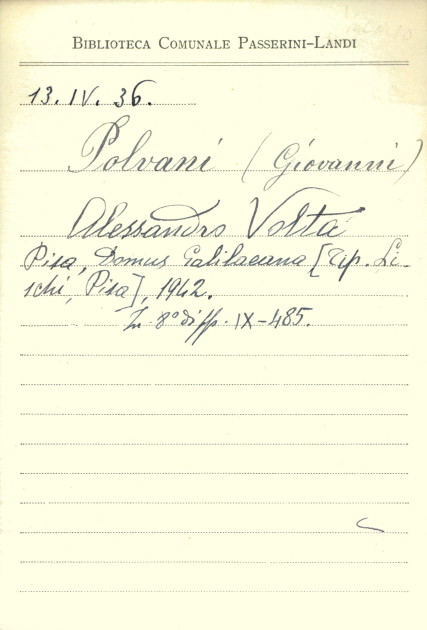 BIBLIOTECA COMUNALE PASSERINI-LANDI
13. IV. 36.
Polvani (Giovanni)
Alessandro Volta
Pisa, Domus Galilaeana [Tip. Li-
schi, Pisa], 1942.
In 8° diff. IX-485.